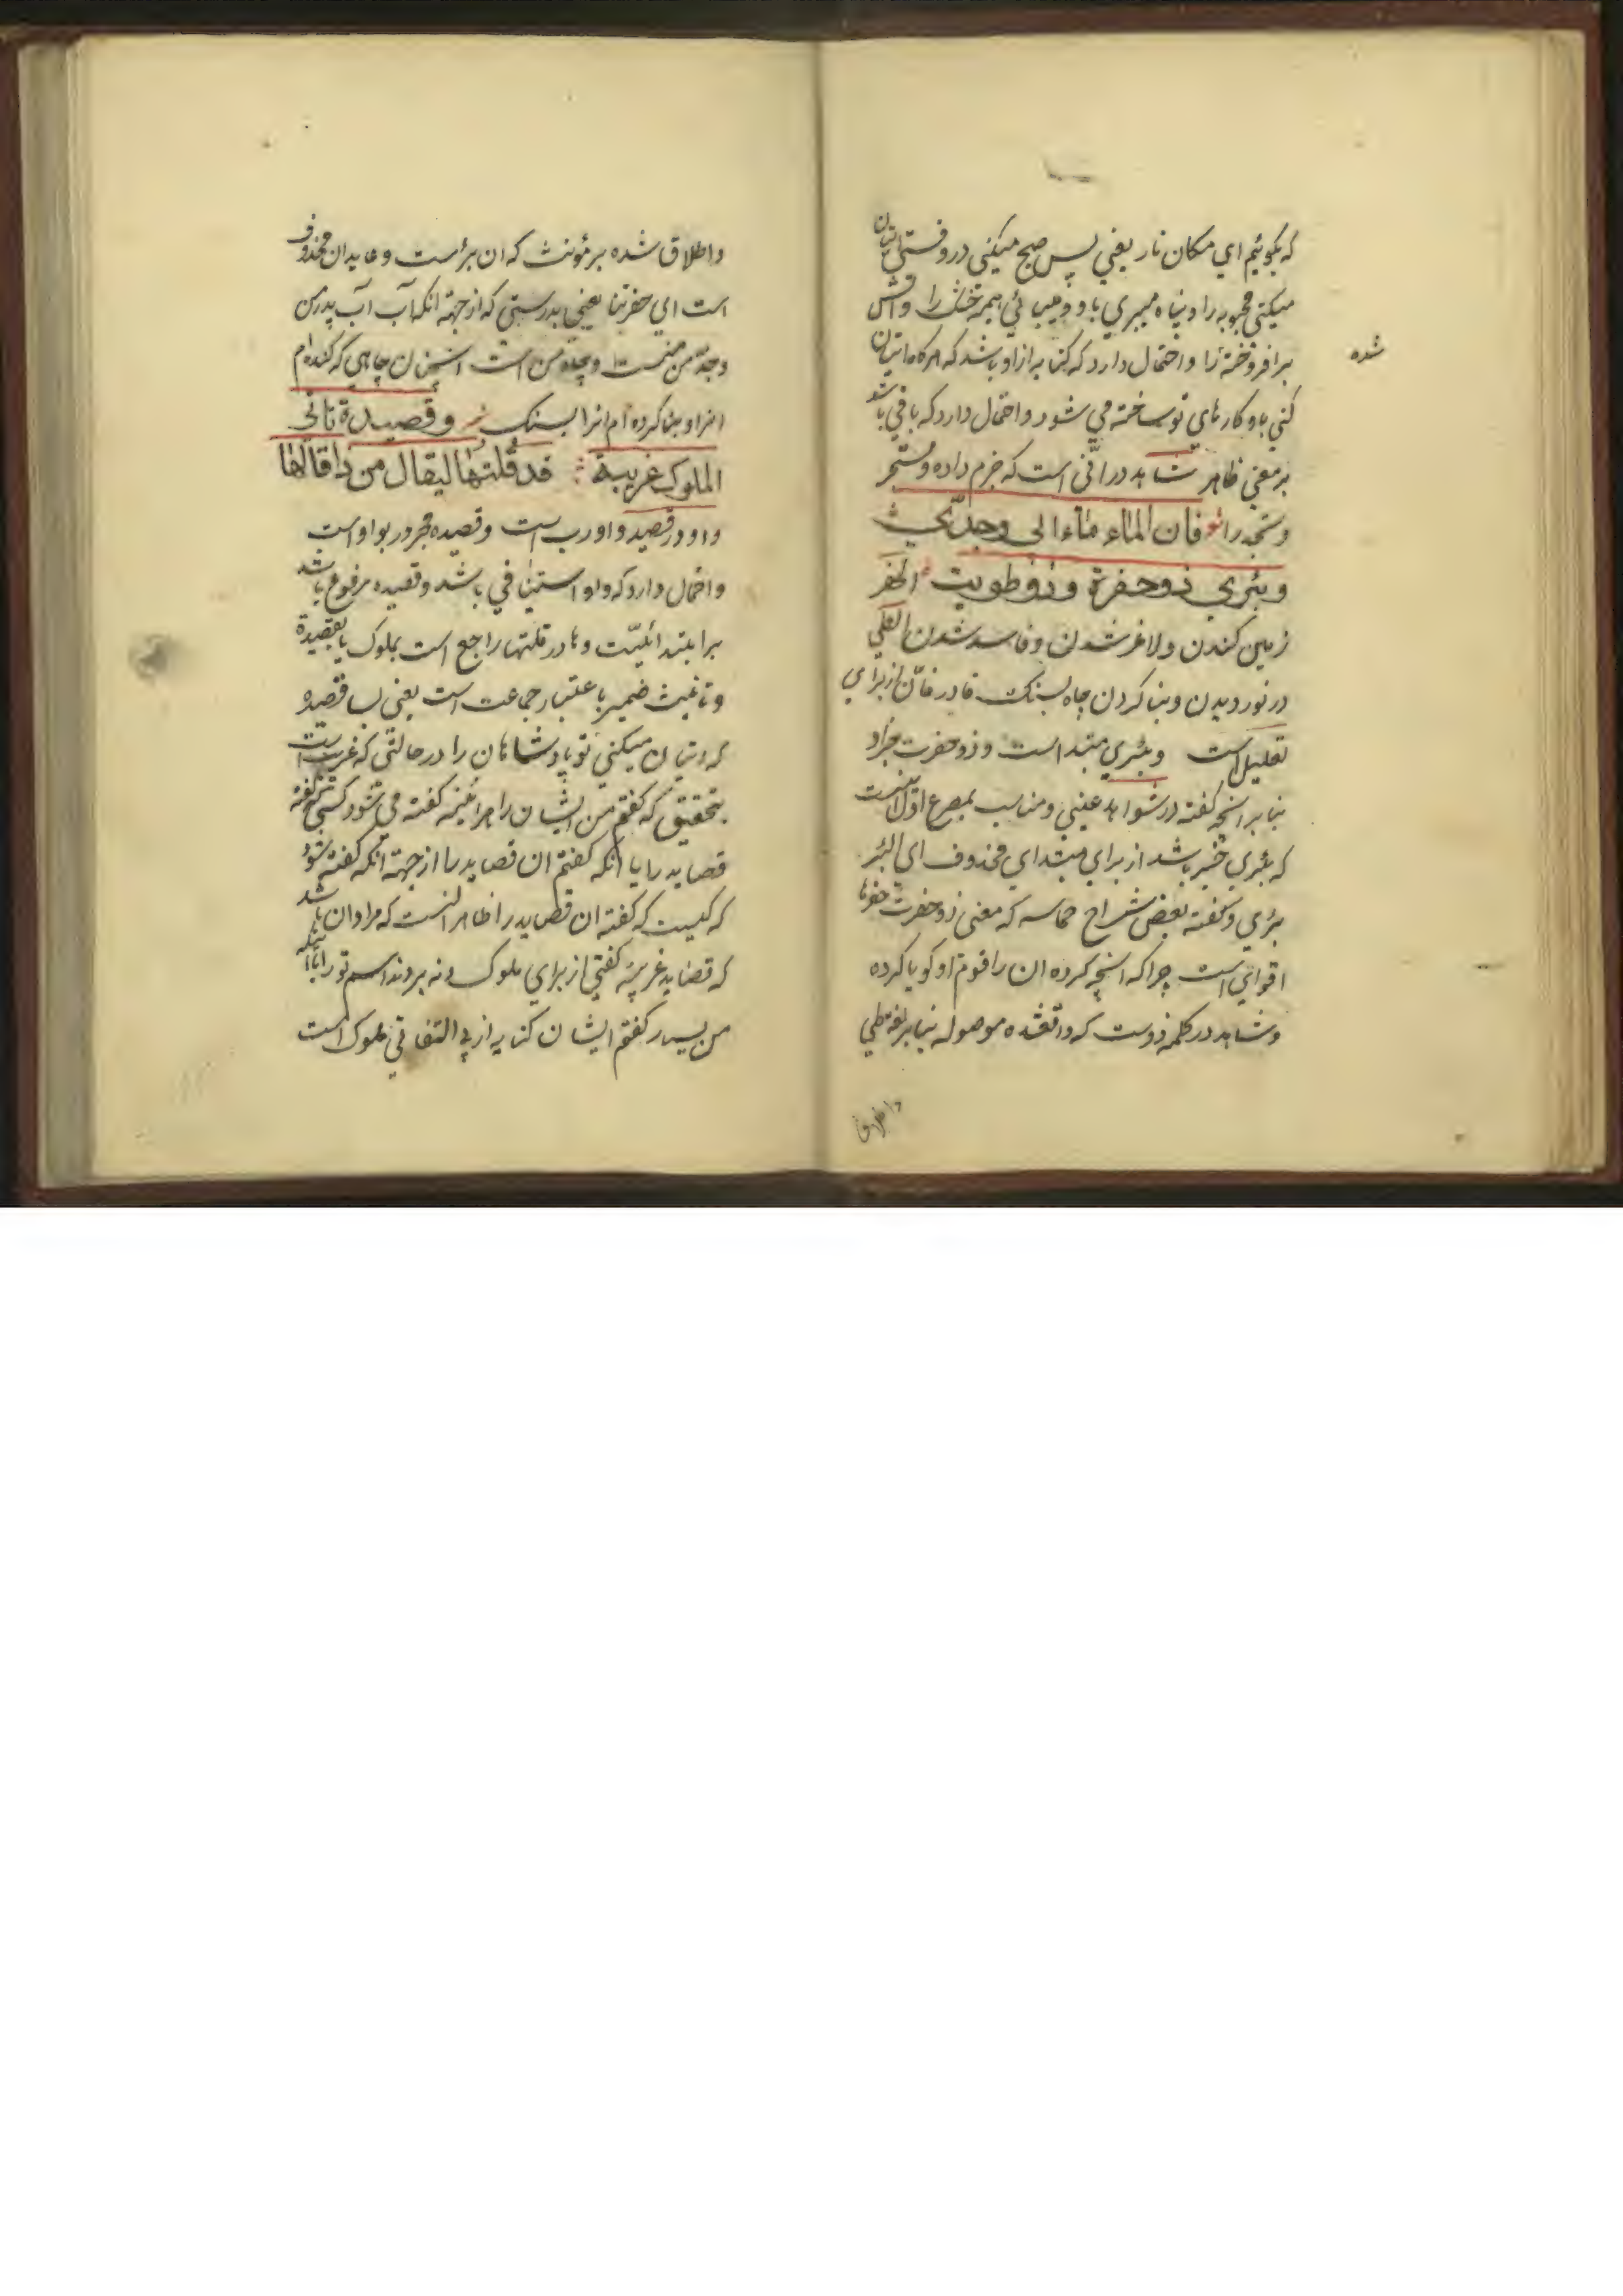 که بکوئیم ای مکان نار یعنی پس صبح میکنی در وقتی اتیان
میکنی محبوبه را و پناه میبری باو و میابی همیه خشک را و اتش
برافروخته را و احتمال دارد که کنایه از او باشد که هر کاه اتیان
شده
کنی باو کارهای تو ساخته می شود و احتمال دارد که باقی باشد
بر معنی ظاهر شاهد در انّی است که جزم داده و تستجر
و تجد را فان الماء ماء ابی وجدّی
وبئری ذو حفرة وذو طویت الحفر
زمین کندن و لاغر شدن و فاسد شدن الطی
در نوردیدن و بنا کردن چاه بسنک فا در فانّ از برای
تعلیل است وبئری مبتدا است و ذو حفرت خبر او
بنابر انچه کفته در شواهد عینی و مناسب بمصرع اول انست
که بئری خبر باشد از برای مبتدای محذوف ای البئر
بئری و کفته بعض شراح حماسه که معنی ذو حفرت حفرتها
اقوای است چرا که انچه کرده ان را قوم او کویا کرده
و شاهد در کلمه ذوست که واقعشده موصوله بنابر لغة طی
واطلاق
واطلاق شده بر مؤنث که ان بئر است و عاید ان محذوف
است ای حفرتها یعنی بدرستی که از جهة انکه آب آب پدر من
وجدّ من است و چاه من است انچنان چاهی که کنده ام
انرا و بنا کرده ام انرا بسنک وقصیدة تاتی
الملوک غریبة قد قلتها لیقال من ذا قالها
واو در قصیده واو رب است و قصیده مجرور بواو است
واحتمال دارد که واو استینافی باشد و قصیده مرفوع باشد
بر ابتدائیّت و ها در قلتها راجع است بملوک یا بقصیدة
و تانیث ضمیر باعتبار جماعت است یعنی بسا قصیده
که اتیان میکنی تو پادشاهان را در حالتی که غریب است
بتحقیق که کفتم من ایشان را هرآینه کفته می شود کیست کفته
قصاید را یا انکه کفتم ان قصاید را از جهة انکه کفته شود
که کیست که کفته ان قصاید را ظاهر انست که مراد ان باشد
که قصاید غریبه کفتی از برای ملوک و نه بردند اسم تو را با انکه
من بسیار کفتم ایشان کنایه از بی التفاتی ملوک است